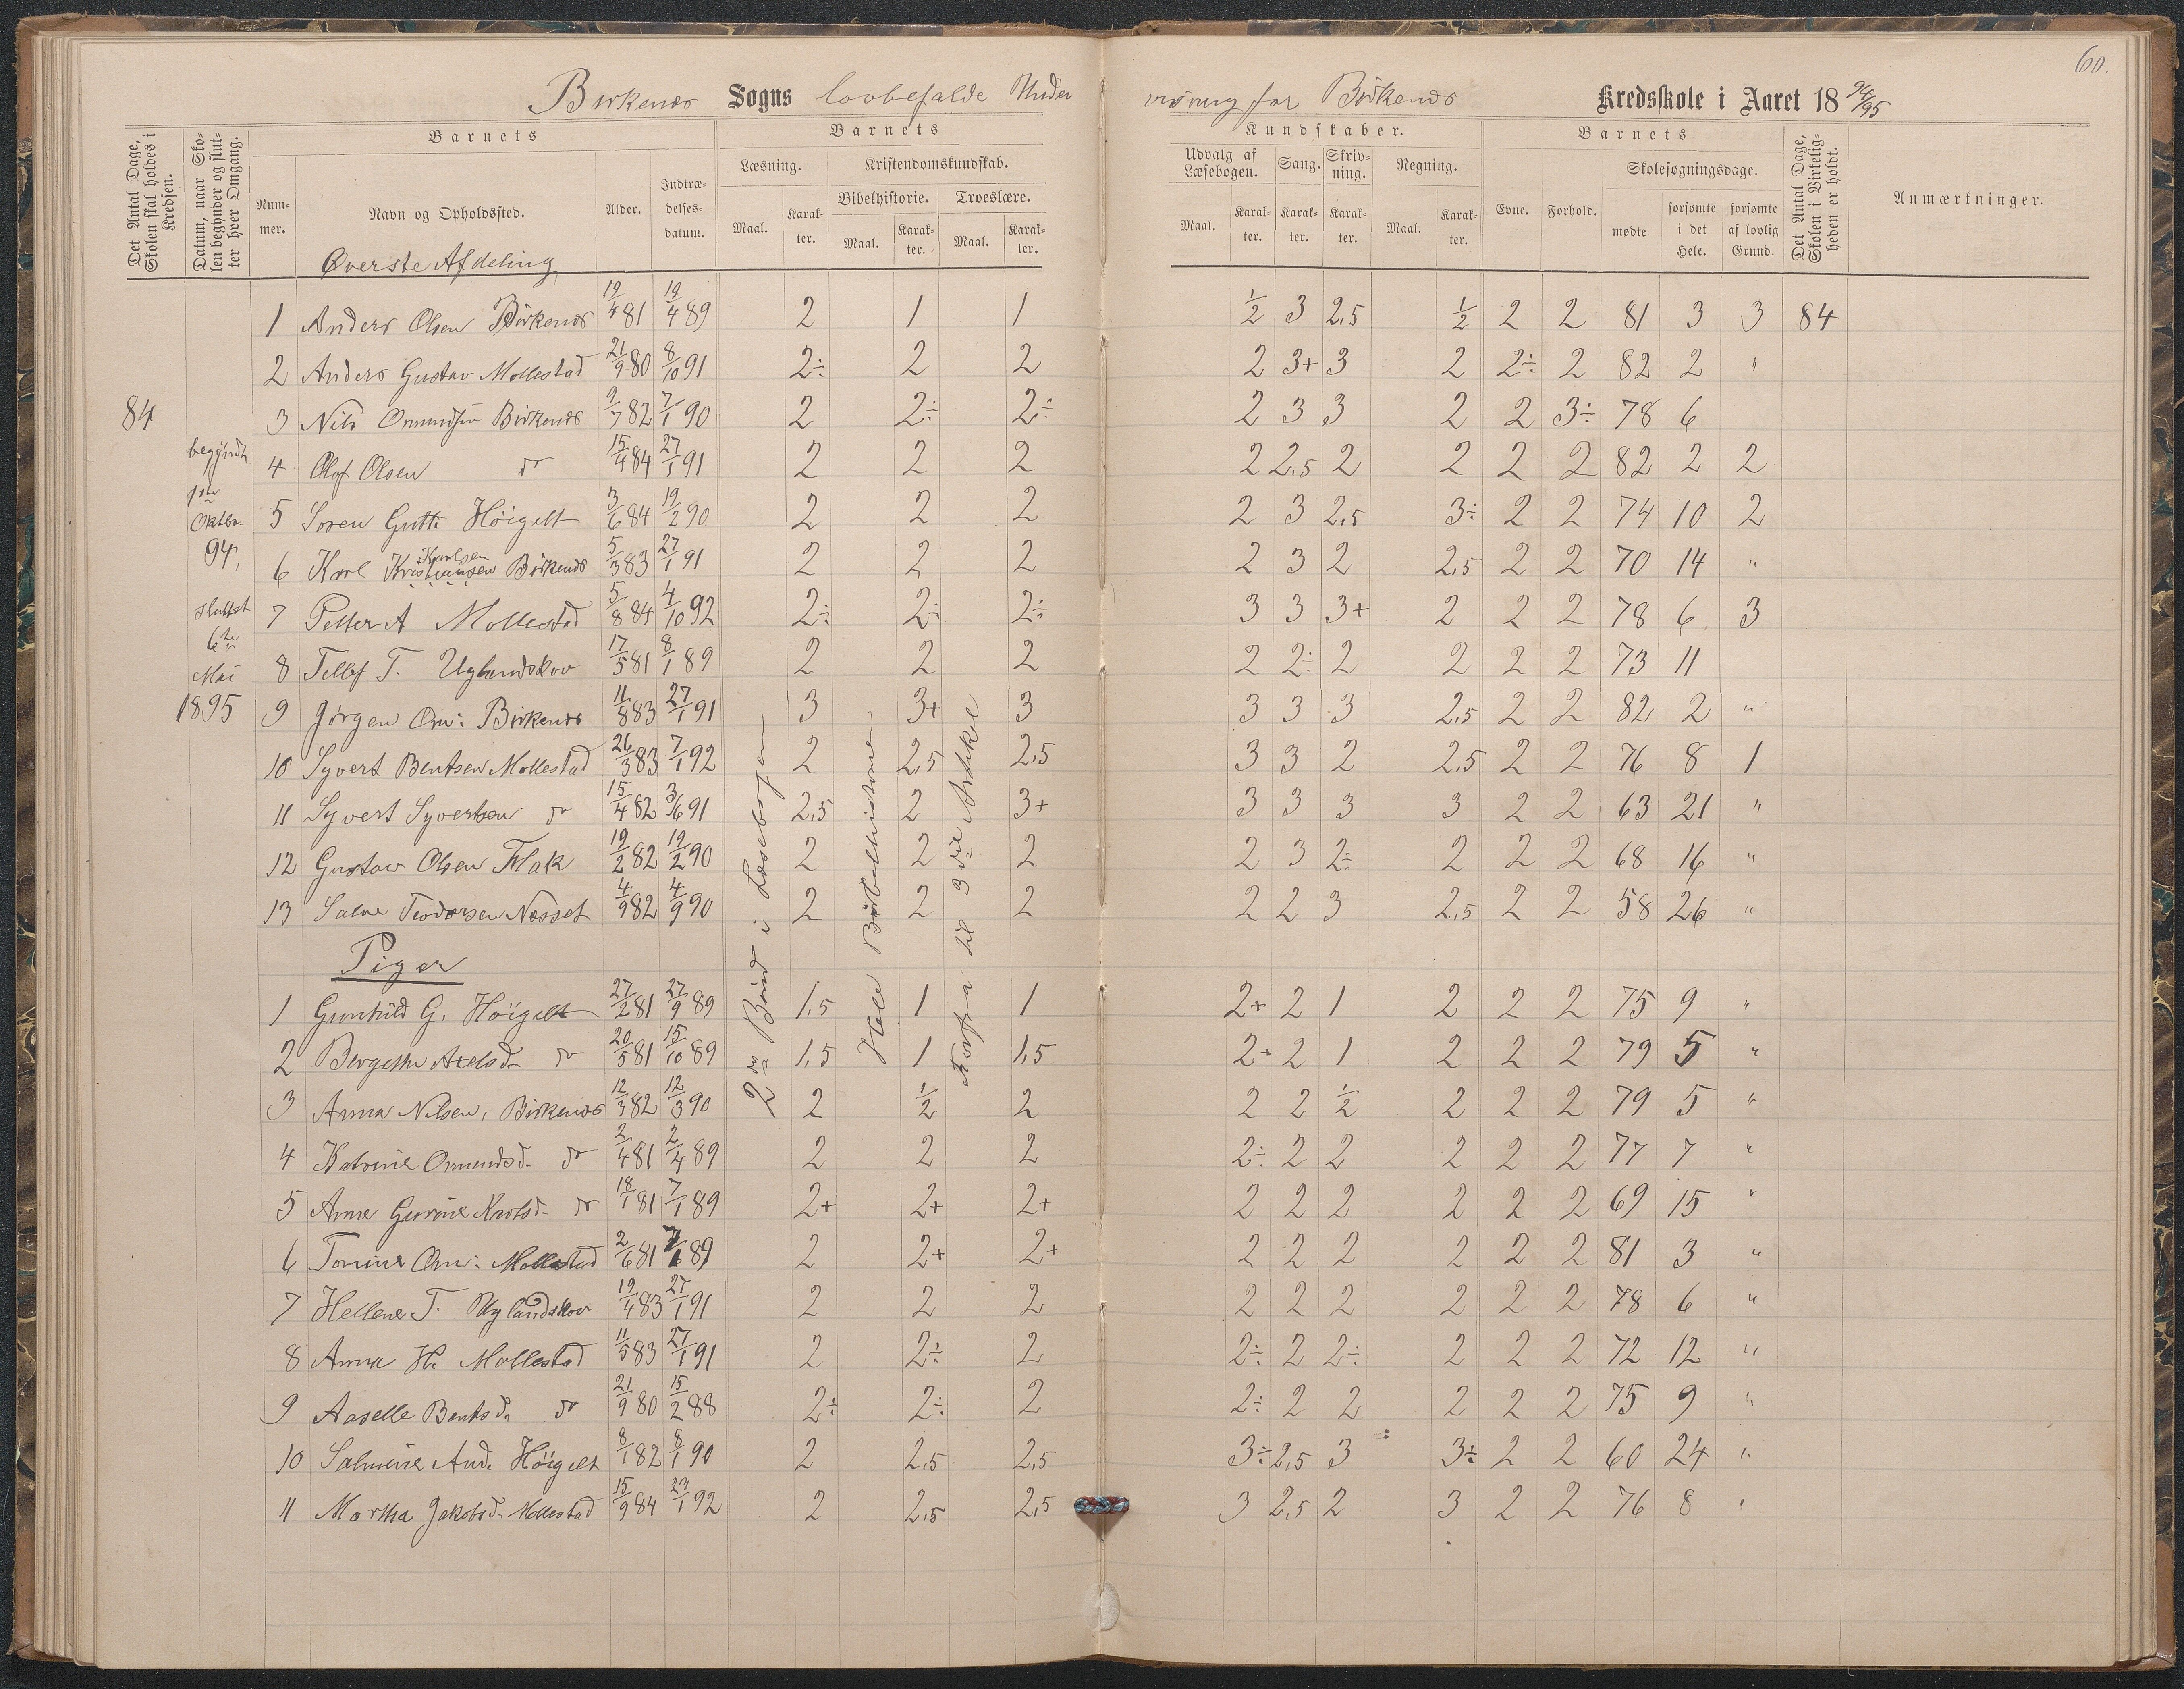 60.
Birkenes Sogns lovbefalde Under
visning for Birkenes Kredsskole i Aaret 18 94/95
Det Antal Dage, Skolen skal holdes i Kredsen.
Datum, naar Skolen begynder og slutter hver Omgang.
Barnets
Nummer.
Navn og Opholdssted.
Alder.
Indtrædelsesdatum.
Barnets
Læsning.
Maal.
Karakter.
Kristendomskundskab.
Bibelhistorie.
Maal.
Karakter.
Troeslære.
Maal.
Karakter.
Kundskaber.
Udvalg af Læsebogen.
Maal.
Karakter.
Sang.
Karakter.
Skrivning.
Karakter.
Regning.
Maal.
Karakter.
Barnets
Evne.
Forhold.
Skolesøgningsdage.
mødte.
forsømte i det Hele.
forsømte af lovlig Grund.
Det Antal Dage, Skolen i Virkeligheden er holdt.
Anmærkninger.
Øverste Afdeling
84
begyndt
1ste
Oktbr.
94,
sluttet
6te
Mai
1895
2den Bind i Læsebogen
Hele Bibelhistorie
Forfra til 3die Artikel
1 Anders Olsen Birkenes 19/4 81 19/4 89 2 1 1 1/2 3 2,5 1/2 2 2 81 3 3 84
2 Anders Gustav Mollestad 21/9 80 8/10 91 2÷ 2 2 2 3+ 3 2 2÷ 2 82 2 "
3 Nils Omundsen Birkenes 9/7 82 7/1 90 2 2÷ 2÷ 2 3 3 2 2 3÷ 78 6
4 Olaf Olsen do 15/4 84 27/1 91 2 2 2 2 2,5 2 2 2 2 82 2 2
5 Soren Gutt: Höigelt 3/6 84 19/2 90 2 2 2 2 3 2,5 3÷ 2 2 74 10 2
6 Karl Kristiansen Karlsen Birkenes 5/3 83 27/1 91 2 2 2 2 3 2 2,5 2 2 70 14 "
7 Petter A Mollestad 5/8 84 4/10 92 2÷ 2÷ 2÷ 3 3 3+ 2 2 2 78 6 3
8 Tellef T. Uglandskov 17/5 81 8/1 89 2 2 2 2 2÷ 2 2 2 2 73 11
9 Jørgen Om: Birkenes 11/8 83 27/1 91 3 3+ 3 3 3 3 2,5 2 2 82 2 "
10 Syvert Bentsen Mollestad 26/3 83 7/1 92 2 2,5 2,5 3 3 2 2,5 2 2 76 8 1
11 Syvert Syvertsen do 15/4 82 3/6 91 2,5 2 3+ 3 3 3 3 2 2 63 21 "
12 Gustav Olsen Flak 19/2 82 19/2 90 2 2 2 2 3 2÷ 2 2 2 68 16 "
13 Salve Teodorsen Nesset 4/9 82 4/9 90 2 2 2 2 2 3 2,5 2 2 58 26 "
Piger
1 Gunhild G. Höigelt 27/2 81 27/9 89 1,5 1 1 2+ 2 1 2 2 2 75 9 "
2 Bergethe Axelsd. do 20/5 81 15/10 89 1,5 1 1,5 2+ 2 1 2 2 2 79 5 "
3 Anna Nilsen, Birkenes 12/3 82 12/3 90 2 1/2 2 2 2 1/2 2 2 2 79 5 "
4 Katrine Omundsd. do 2/4 81 2/4 89 2 2 2 2÷ 2 2 2 2 2 77 7 "
5 Anne Gurine Karlsd. do 18/1 81 7/1 89 2+ 2+ 2+ 2 2 2 2 2 2 69 15 "
6 Tomine Om: Mollestad 2/6 81 7/6 89 2 2+ 2+ 2 2 2 2 2 2 81 3 "
7 Hellene T. Uglandskov 19/4 83 27/1 91 2 2 2 2 2 2 2 2 2 78 6 "
8 Anna H. Mollestad 11/5 83 27/1 91 2 2÷ 2 2÷ 2 2÷ 2 2 2 72 12 "
9 Aaselle Bentsd. do 21/9 80 15/2 88 2÷ 2÷ 2 2÷ 2 2 2 2 2 75 9 "
10 Salmine And. Höigelt 8/1 82 8/1 90 2 2,5 2,5 3÷ 2,5 3 3÷ 2 2 60 24 "
11 Martha Jakobsd. Mollestad 15/9 84 27/1 92 2 2,5 2,5 3 2,5 2 3 2 2 76 8 "